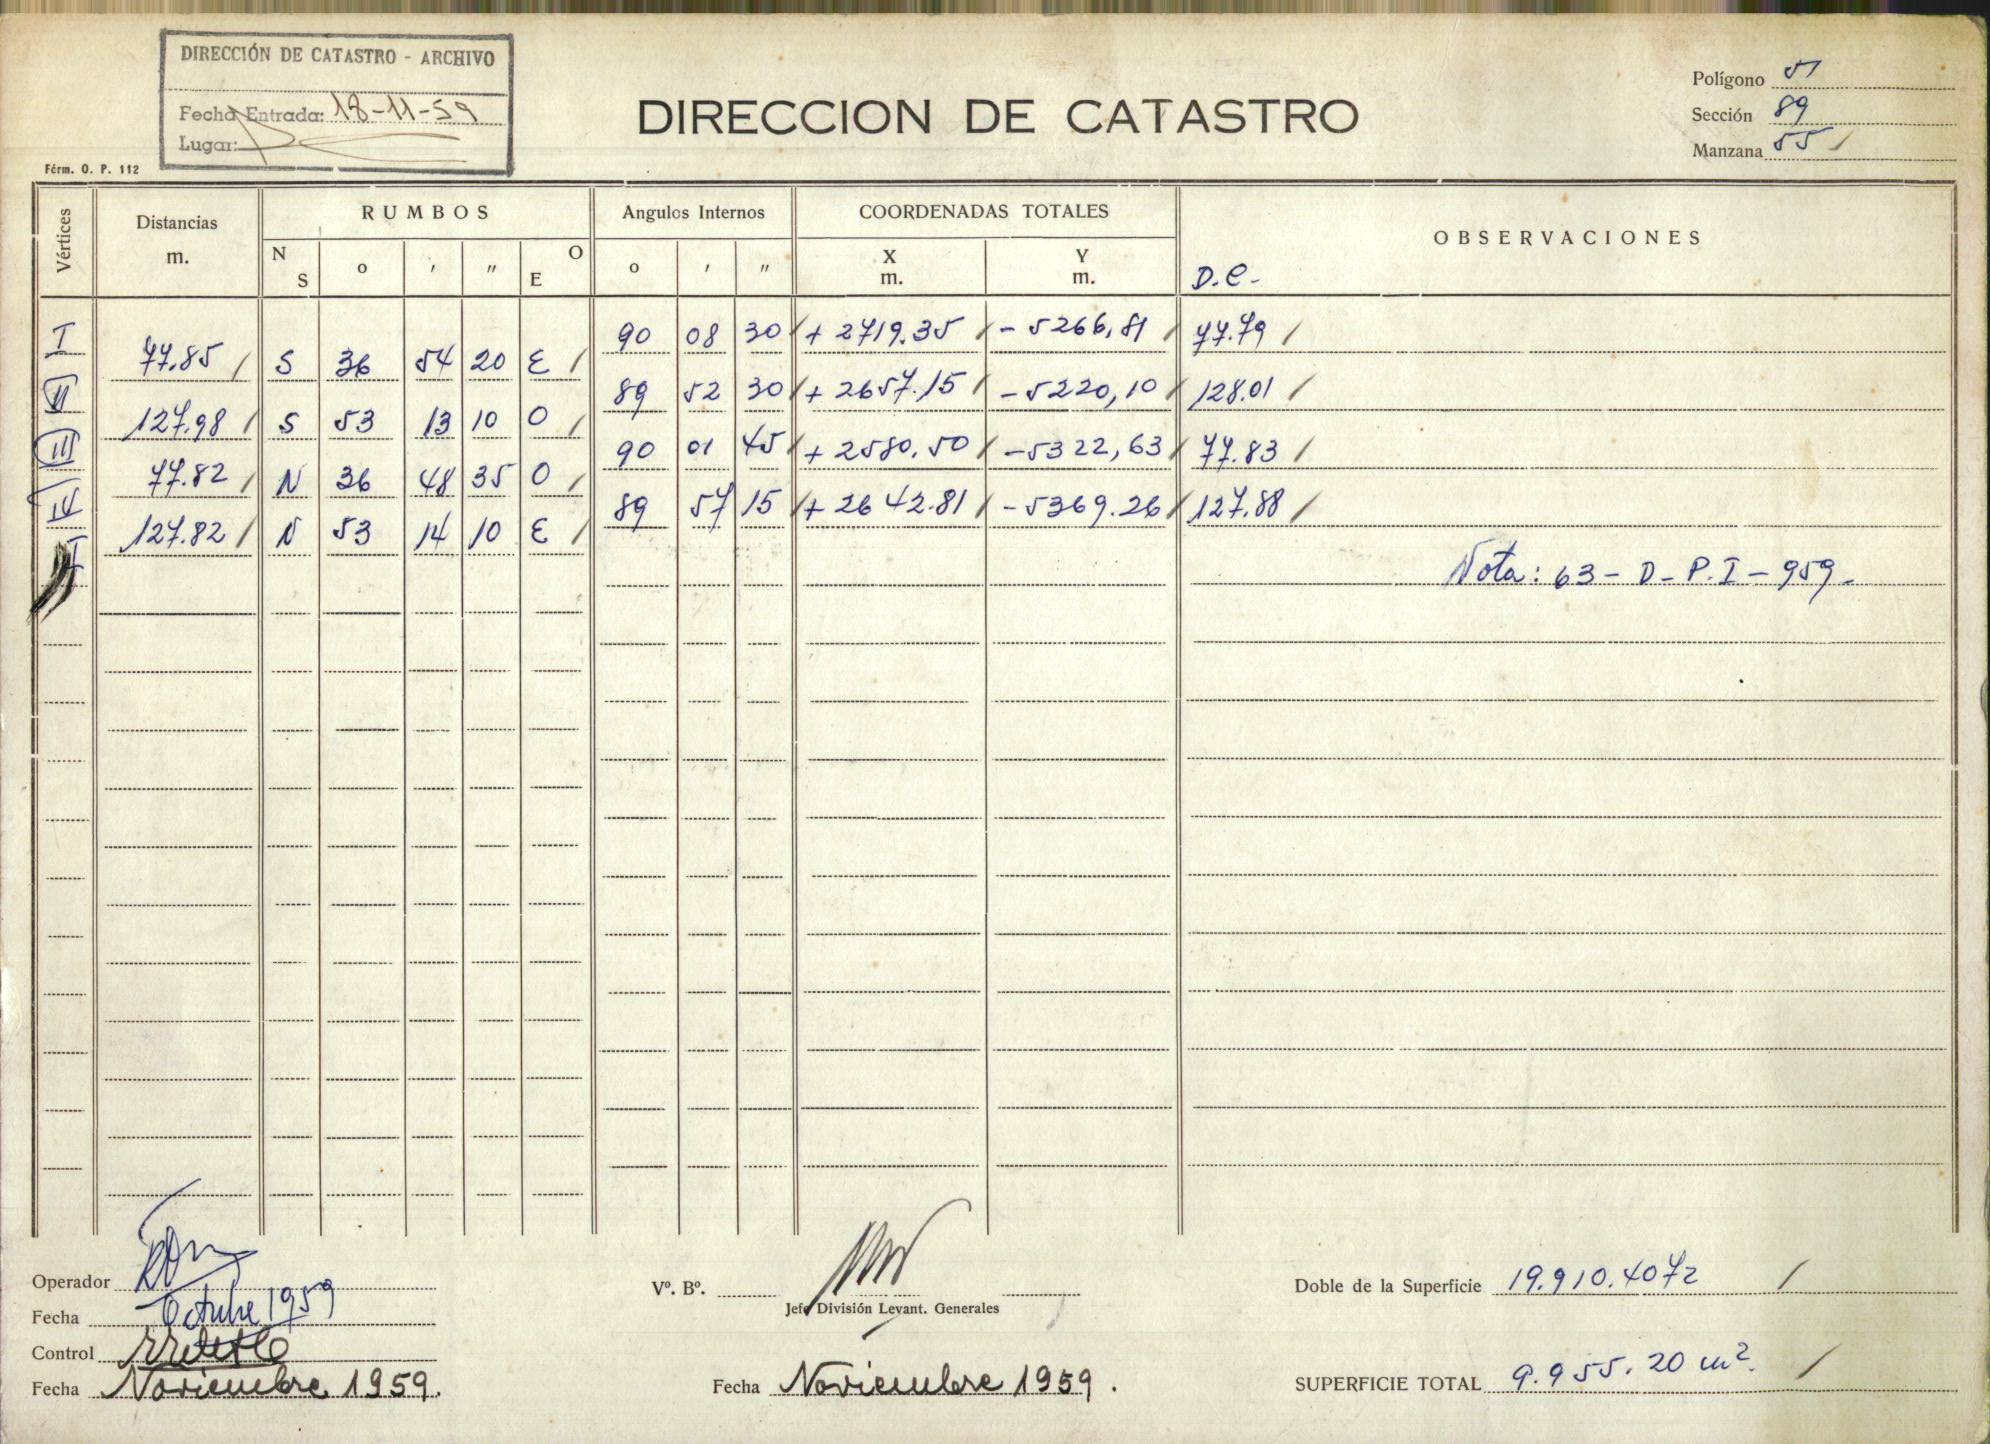 DIRECCIÓN DE CATASTRO - ARCHIVO
Fecha Entrada: 18-11-59
Lugar:
Fórm. O. P. 112
DIRECCION DE CATASTRO
Polígono 51
Sección 89
Manzana 55 /
Vértices Distancias m. RUMBOS N S o ' " O E Angulos Internos o ' " COORDENADAS TOTALES X m. Y m. OBSERVACIONES
D.C.-
I 90 08 30 / + 2719.35 / - 5266,81 / 77.79 /
77.85 / S 36 54 20 E /
II 89 52 30 / + 2657.15 / - 5220,10 / 128.01 /
127.98 / S 53 13 10 O /
III 90 01 45 / + 2580.50 / - 5322,63 / 77.83 /
77.82 / N 36 48 35 O /
IV 89 57 15 / + 2642.81 / - 5369.26 / 127.88 /
127.82 / N 53 14 10 E /
I
Nota: 63 - D - P.I - 959 -
Operador
Fecha Octubre 1959
Control
Fecha Noviembre 1959.
Vº. Bº.
Jefe División Levant. Generales
Fecha Noviembre 1959.
Doble de la Superficie 19.910.4072 /
SUPERFICIE TOTAL 9.955.20 m². /